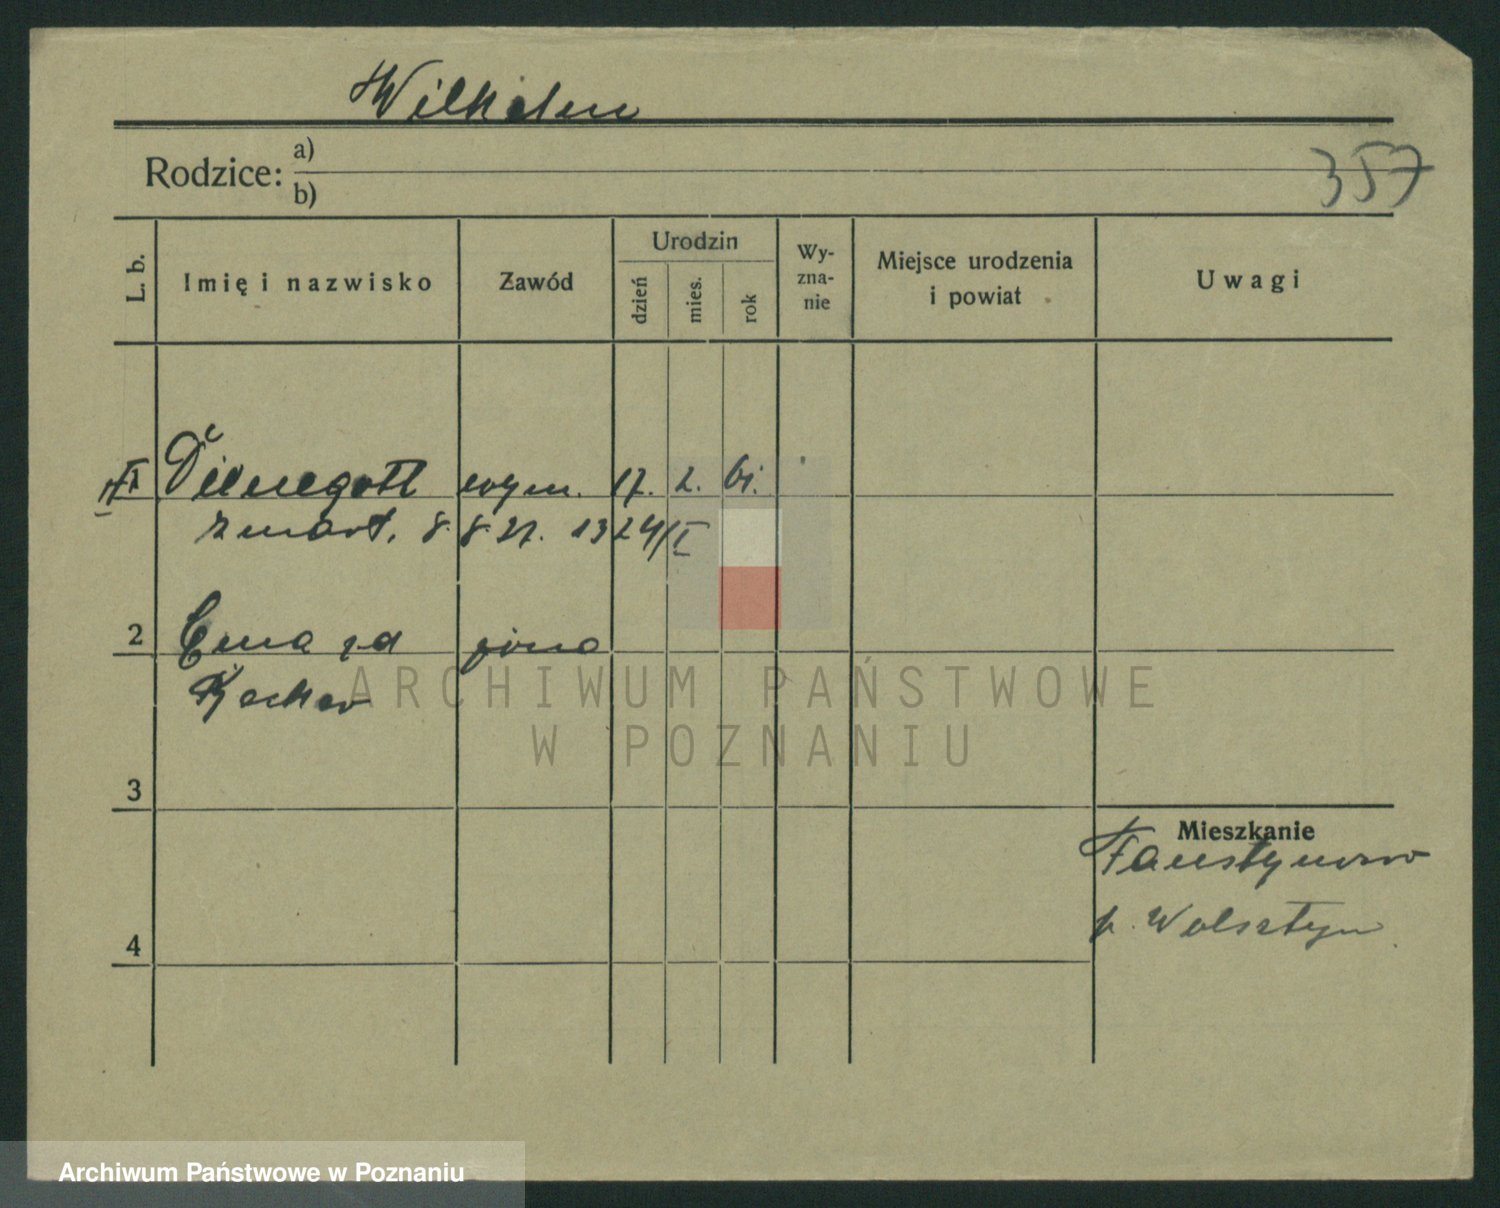 Wilhelm
Rodzice: a)
b)
357
L. b.
Imię i nazwisko
Zawód
Urodzin
dzień
mies.
rok
Wy-
zna-
nie
Miejsce urodzenia
i powiat
Uwagi
1 Dienegott 17. 2. 61.
zmarł. 8. 8. 27. 1324/I
2 Ema zd żona
3
4
Mieszkanie
Faustynowo
p. Wolsztyn
ARCHIWUM PAŃSTWOWE
W POZNANIU
Archiwum Państwowe w Poznaniu